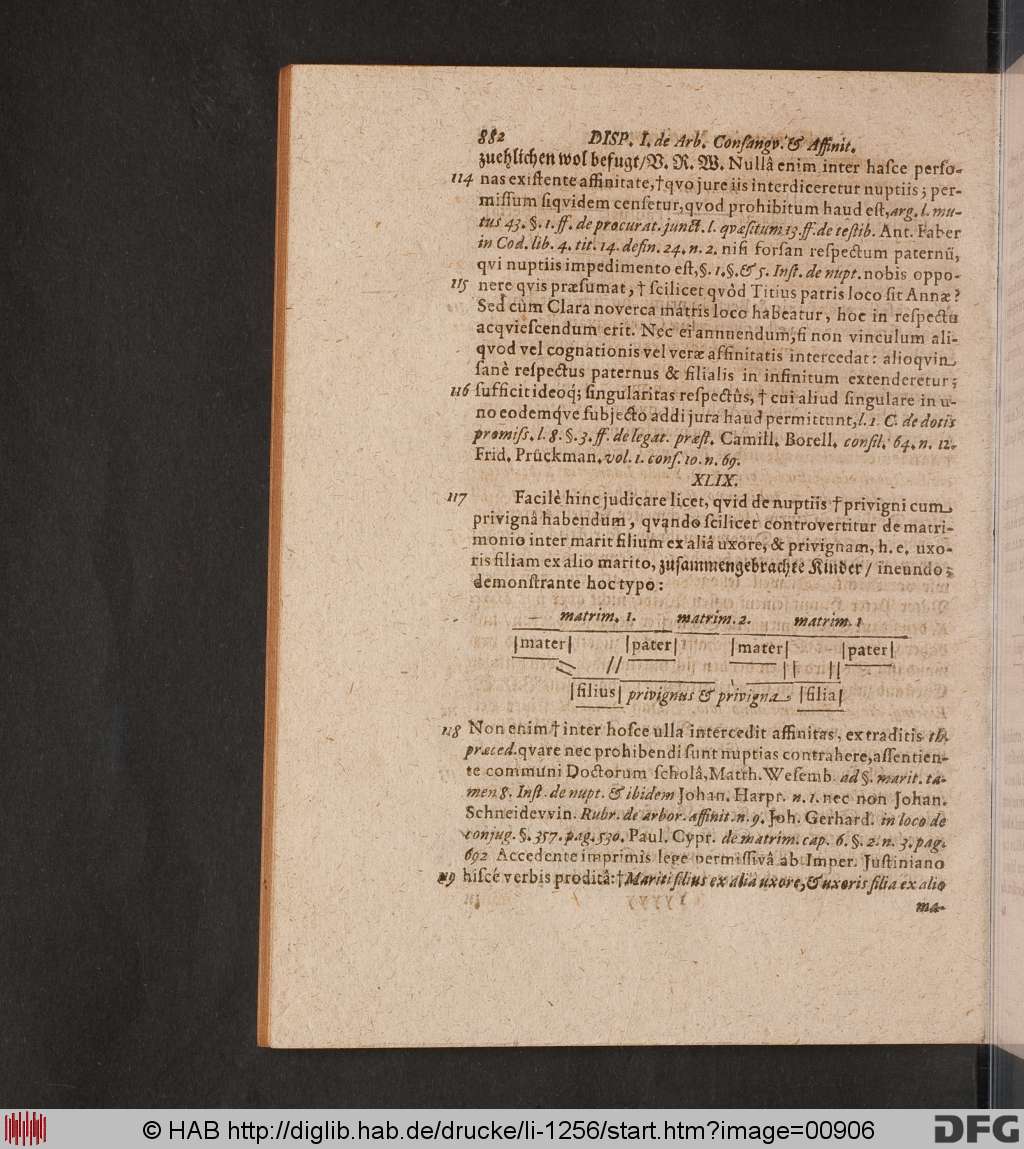 882 DISP. I. de Arb. Consangv. & Affinit.
zuehlichen wol befugt / V. R. W. Nullâ enim inter hasce perso-
114 nas existente affinitate, † qvo jure iis interdiceretur nuptiis; per-
missum siqvidem censetur, qvod prohibitum haud est, arg. l. mu-
tus 43. §. 1. ff. de procurat. junct. l. qvæsitum 13. ff. de testib. Ant. Faber
in Cod. lib. 4. tit. 14. defin. 24. n. 2. nisi forsan respectum paternũ,
qvi nuptiis impedimento est, §. 1. §. & 5. Inst. de nupt. nobis oppo-
115 nere qvis præsumat, † scilicet qvòd Titius patris loco sit Annæ?
Sed cùm Clara noverca matris loco habeatur, hoc in respectu
acqviescendum erit. Nec ei annuendum, si non vinculum ali-
qvod vel cognationis vel veræ affinitatis intercedat: alioqvin
sanè respectus paternus & filialis in infinitum extenderetur;
116 sufficit ideoq; singularitas respectûs, † cui aliud singulare in u-
no eodemqve subjecto addi jura haud permittunt, l. 1. C. de dotis
promiss. l. 8. §. 3. ff. de legat. præst. Camill. Borell. consil. 64. n. 12.
Frid. Prückman. vol. 1. cons. 10. n. 69.
XLIX.
117 Facilè hinc judicare licet, qvid de nuptiis † privigni cum
privignâ habendum, qvando scilicet controvertitur de matri-
monio inter marit filium ex aliâ uxore, & privignam, h. e. uxo-
ris filiam ex alio marito, zusammengebrachte Kinder / ineundo;
demonstrante hoc typo:
matrim. 1. matrim. 2. matrim. 1
|mater| |pater| |mater| |pater|
|filius| privignus & privigna |filia|
118 Non enim † inter hosce ulla intercedit affinitas, ex traditis th.
præced. qvare nec prohibendi sunt nuptias contrahere, assentien-
te communi Doctorum scholâ, Matth. Wesemb. ad §. marit. ta-
men 8. Inst. de nupt. & ibidem Johan. Harpr. n. 1. nec non Johan.
Schneidevvin. Rubr. de arbor. affinit. n. 9. Joh. Gerhard. in loco de
conjug. §. 357. pag. 530. Paul. Cypr. de matrim. cap. 6. §. 2. n. 3. pag.
692 Accedente imprimis lege permissivâ ab Imper. Justiniano
119 hisce verbis proditâ: † Mariti filius ex alia uxore, & uxoris filia ex alio
ma-
© HAB http://diglib.hab.de/drucke/li-1256/start.htm?image=00906
DFG